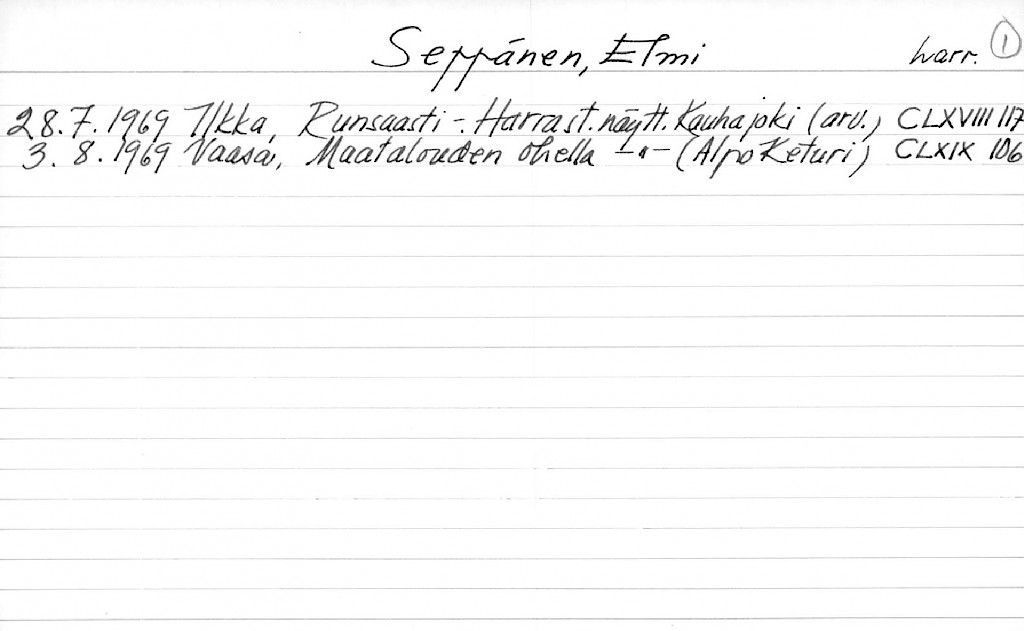 Seppänen, Elmi harr. 1
28.7.1969 Ilkka, Runsaasti - Harrast.näytt. Kauhajoki (arv.) CLXVIII 117
3.8.1969 Vaasa, Maatalouden ohella -"- (Alpo Keturi) CLXIX 106